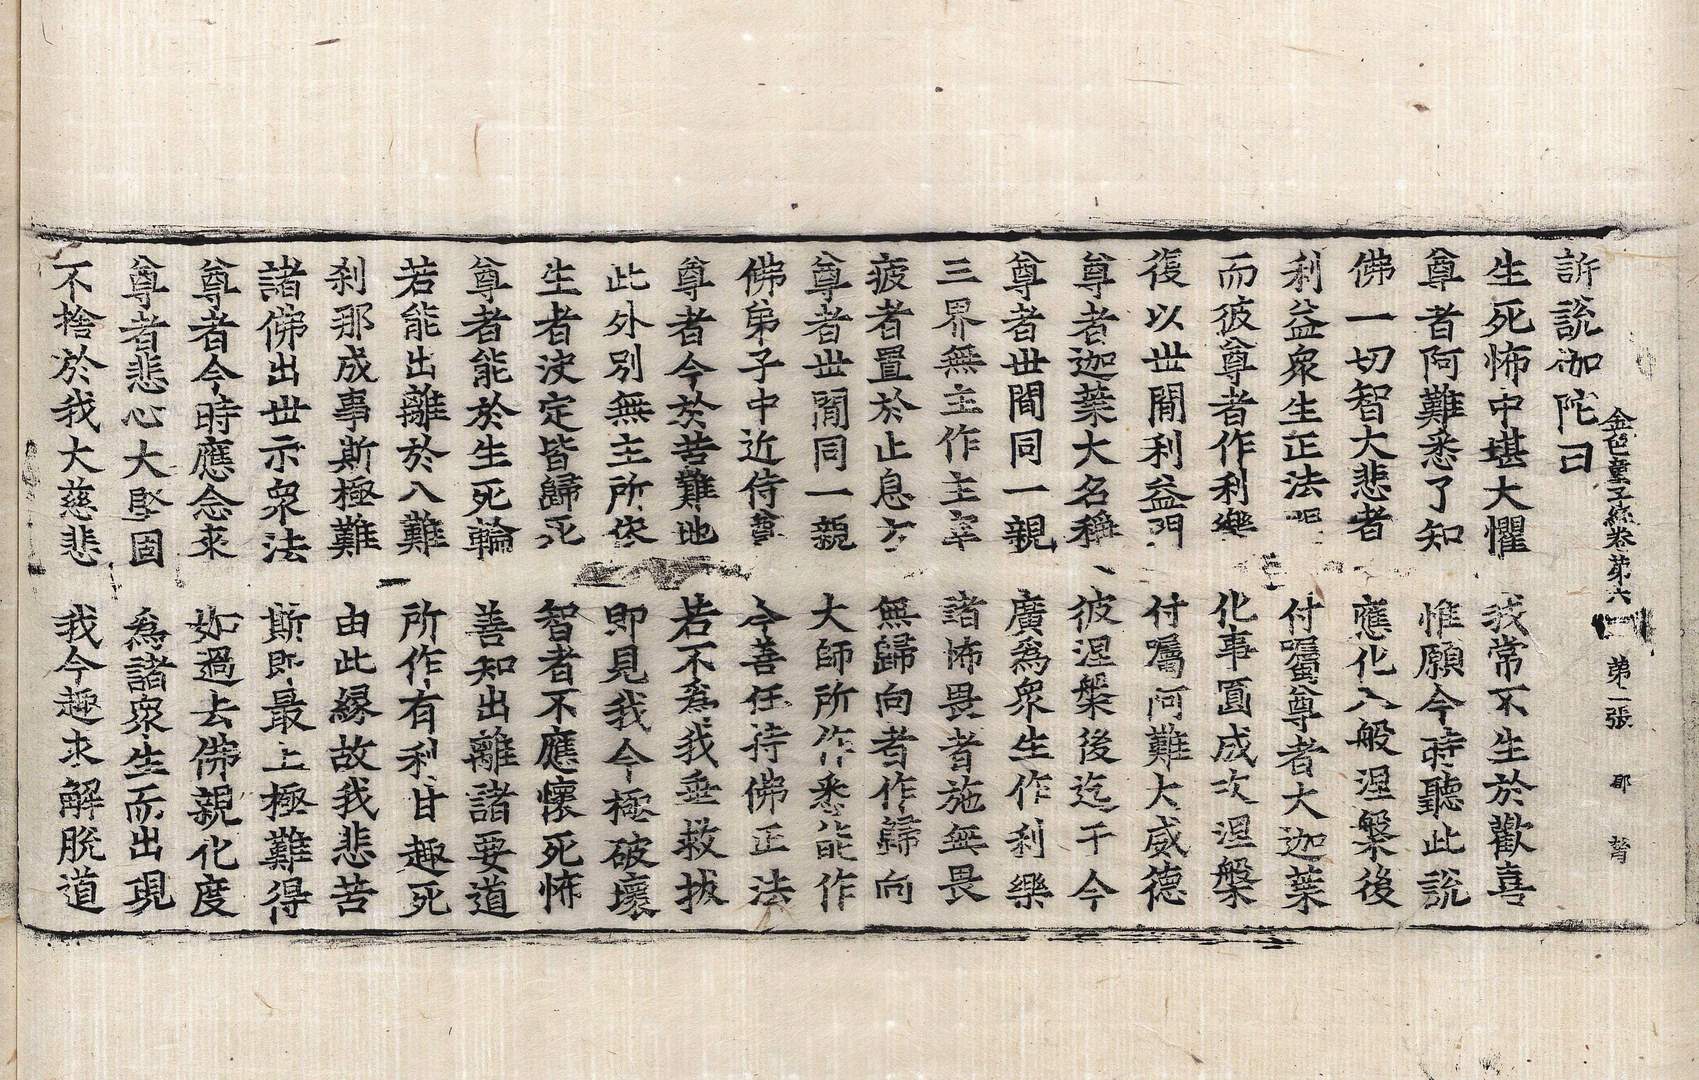 金色童子經卷第六 第二張 郡
訴說伽陀曰
生死怖中堪大懼 我常不生於歡喜
尊者阿難悉了知 惟願今時聽此說
佛一切智大悲者 應化入般涅槃後
利益衆生正法 付囑尊者大迦葉
而彼尊者作利樂 化事圓成次涅槃
復以世間利益門 付囑阿難大威德
尊者迦葉大名稱 彼涅槃後迄于今
尊者世間同一親 廣爲衆生作利樂
三界無主作主宰 諸怖畏者施無畏
疲者置於止息方 無歸向者作歸向
尊者世間同一親 大師所作悉能作
佛弟子中近侍尊 今善任持佛正法
尊者今於苦難地 若不爲我垂救拔
此外別無主所依 即見我今極破壞
生者決定皆歸死 智者不應懷死怖
尊者能於生死輪 善知出離諸要道
若能出離於八難 所作有利甘趣死
刹那成事斯極難 由此緣故我悲苦
諸佛出世示衆法 斯即最上極難得
尊者今時應念來 如過去佛親化度
尊者悲心大堅固 爲諸衆生而出現
不捨於我大慈悲 我今趣求解脫道